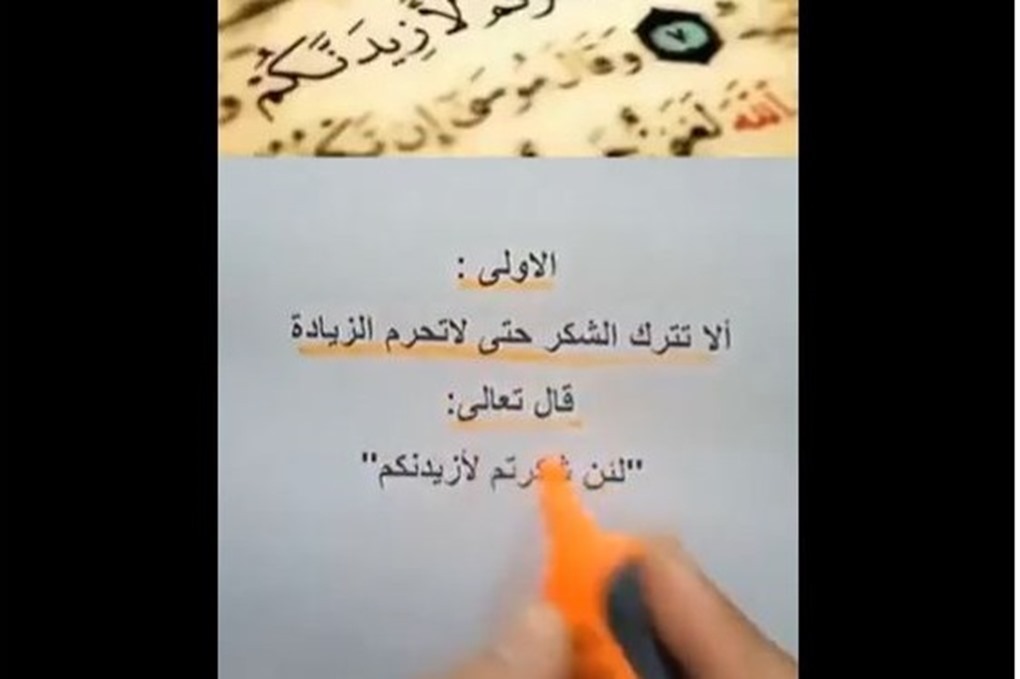 لَأَزِيدَنَّكُمْ
٧ وَقَالَ مُوسَى إِن
اللَّهَ
الاولى :
ألا تترك الشكر حتى لاتحرم الزيادة
قال تعالى:
"لئن شكرتم لأزيدنكم"